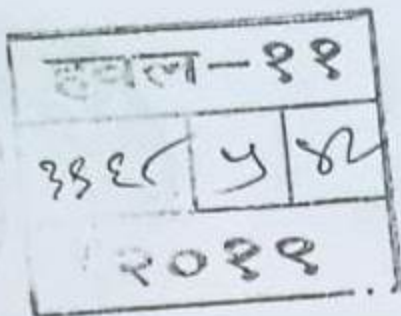 हवल-११
३९६८ ५ ४२
२०११